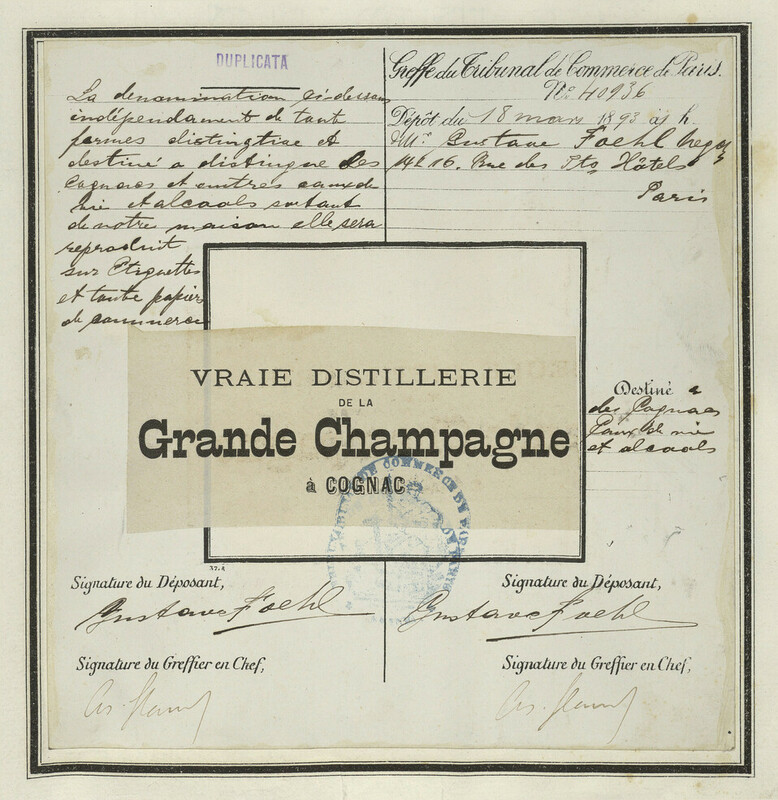 DUPLICATA
La denomination ci-dessus
indépendament de tout
formes distingtive et
destiné a distingue des
Cognacs et autres eaux de
vie et alcools sortant
de notre maison elle sera
reproduit
sur Etiquettes
et toute papier
de commerce
Greffe du Tribunal de Commerce de Paris.
No 40936
Dépôt du 18 mars 1893 à h.
M. Gustave Foehl negt
14 & 16. Rue des Pts Hôtels
Paris
VRAIE DISTILLERIE
DE LA
Grande Champagne
à COGNAC
Destiné a
des Cognacs
Eaux de vie
et alcools
TRIBUNAL DE COMMERCE DE
37.4
Signature du Déposant,
Gustave Foehl
Signature du Greffier en Chef,
Signature du Déposant,
Gustave Foehl
Signature du Greffier en Chef,